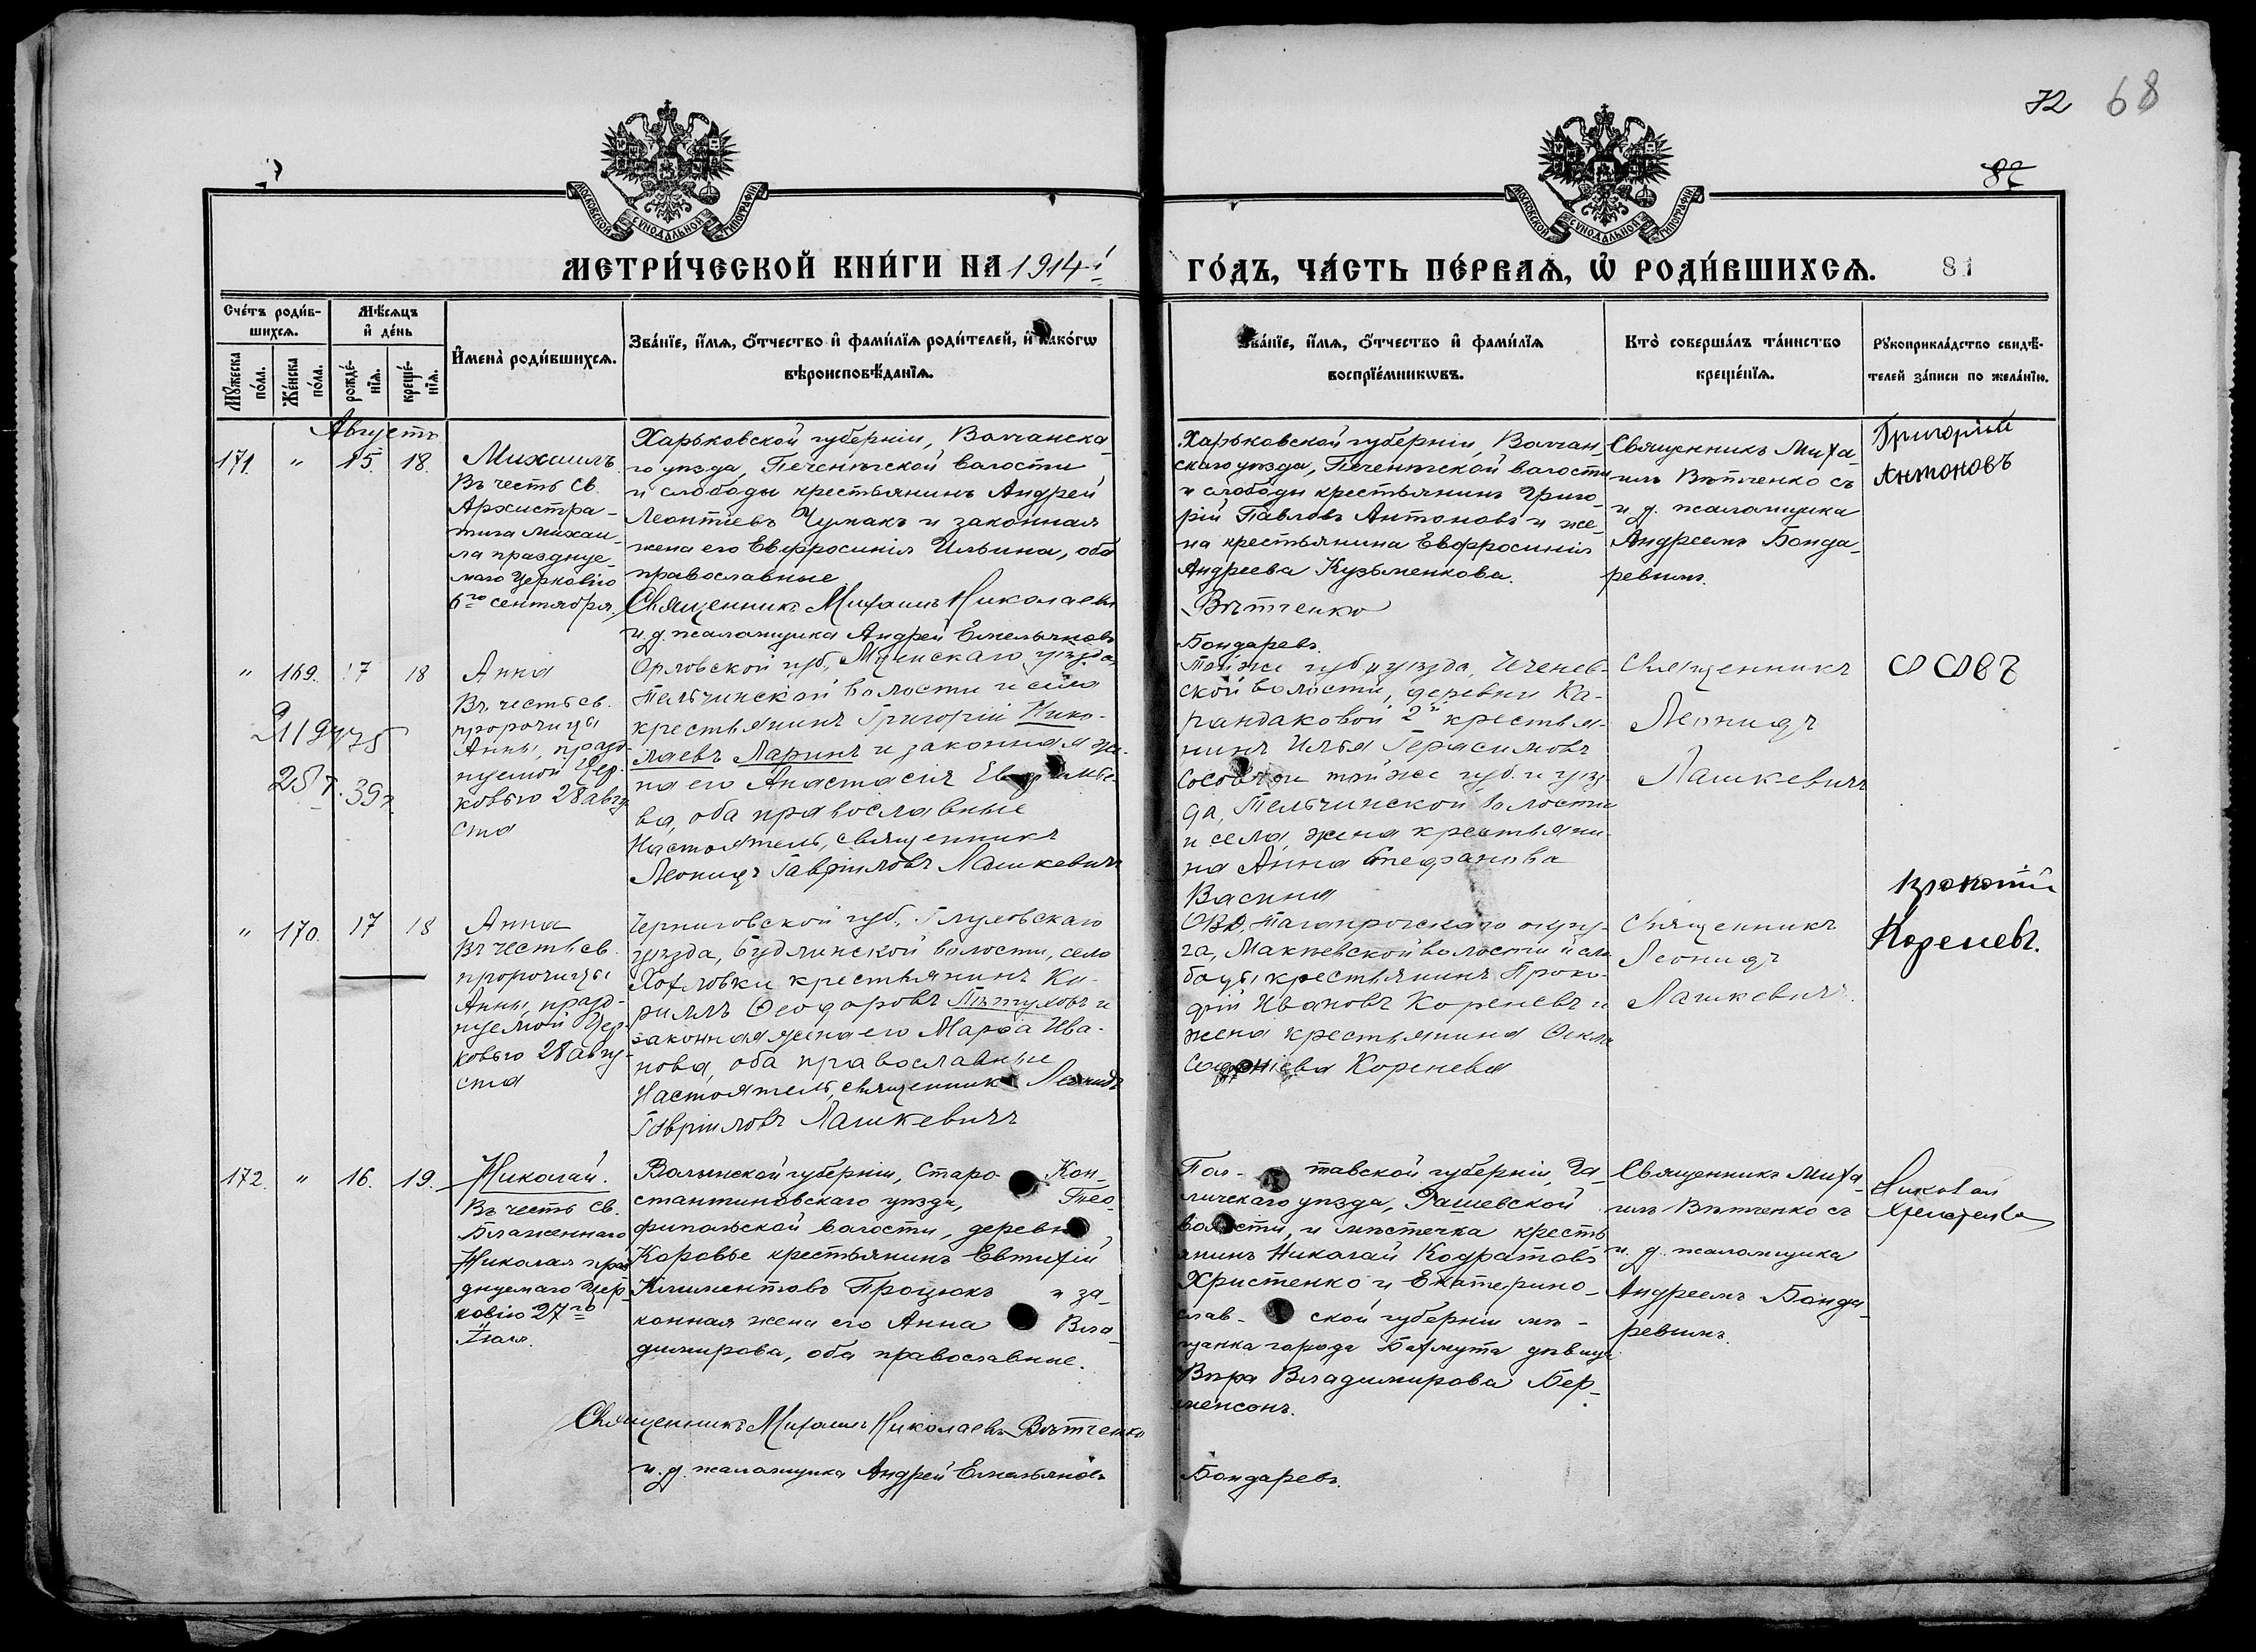 72 68
82
МОСКОВСКОЙ СУНОДАЛЬНОЙ ТИПОГРАФИИ
МОСКОВСКОЙ СУНОДАЛЬНОЙ ТИПОГРАФИИ
МЕТРИ́ЧЕСКОЙ КНИ́ГИ НА 1914 й
ГО́ДЪ, ЧА́СТЬ ПЕ́РВАѦ, Ѡ҆ РОДИ́ВШИХСѦ. 81
Сче́тъ роди́в-
шихсѧ.
Мꙋ́жеска
по́ла.
Же́нска
по́ла.
Мѣ́сѧцъ
и҆ де́нь
рожде́-
нїѧ.
креще́-
нїѧ.
И҆мена̀ роди́вшихсѧ.
Зва́нїе, и҆́мѧ, ѻ҆́тчество и҆ фами́лїѧ роди́телей, и҆ како́гѡ
вѣроисповѣ́данїѧ.
Зва́нїе, и҆́мѧ, ѻ҆́тчество и҆ фами́лїѧ
воспрїе́мникѡвъ.
Кто̀ соверша́лъ та́инство
креще́нїѧ.
Рꙋкоприкла́дство свидѣ́-
телей за́писи по жела́нїю.
Августъ
171. " 15. 18.
Михаилъ
Въ честь св.
Архистра-
тига Михаи-
ла праздуе-
маго Церковію
6го сентября.
Харьковской губерніи, Волчанска-
го уѣзда, Печенѣгской волости
и слободы крестьянинъ Андрей
Леонтіевъ Чумакъ и законная
жена его Евфросинія Ильина, оба
православные
Священникъ Михаилъ Николаевъ
и. д. псаломщика Андрей Емельяновъ
Харьковской губерніи, Волчан-
скаго уѣзда, Печенѣгской волости
и слободы крестьянинъ Григо-
рій Павловъ Антоновъ и же-
на крестьянина Евфросинія
Андреева Кузьменкова.
Вѣтченко
Бондаревъ.
Священникъ Миха-
илъ Вѣтченко съ
и. д. псаломщика
Андреемъ Бонда-
ревымъ.
Григорій
Антоновъ
" 169. 17 18
Анна
Въ честь св.
пророчицы
Анны, празд-
нуемой Цер-
ковью 28 авгу
ста
Орловской губ., Мценскаго уѣзда,
Тельчинской волости и села
крестьянинъ Григорій Нико-
лаевъ Ларинъ и законная же-
на его Анастасія
ва, оба православные
Настоятель, священникъ
Леонидъ Гавріиловъ Лашкевичъ
Той же губ. и уѣзда,
ской волости, деревни Ка-
рандаковой 2й крестья-
нинъ Илья Герасимовъ
той же губ. и уѣз-
да, Тельчинской волости
и села, жена крестьяни-
на Анна Стефанова
Васина
Священникъ
Леонидъ
Лашкевичъ
" 170. 17 18
Анна
Въ честь св.
пророчицы
Анны, празд-
нуемой Цер-
ковью 28 авгу-
ста
Черниговской губ., Глуховскаго
уѣзда, волости, село
крестьянинъ Ки-
риллъ Ѳеодоровъ Пѣтуховъ и
законная жена его Марѳа Ива-
нова, оба православные
Настоятель, священникъ Леонидъ
Гавріиловъ Лашкевичъ
ОВД, Таганрогскаго окру-
га, Макѣевской волости и сло
боды крестьянинъ Проко-
фій Ивановъ Кореневъ и
жена крестьянина Ѳекла
Коренева
Священникъ
Леонидъ
Лашкевичъ.
Кореневъ.
172. " 16. 19.
Николай.
Въ честь св.
Блаженнаго
Николая праз
днуемаго Цер-
ковію 27го
Іюля.
Волынской губерніи, Старо Кон-
стантиновскаго уѣзда, Тео-
фипольской волости, деревни
Коровье крестьянинъ Евтихій
Климентовъ Процюкъ и за-
конная жена его Анна Вла-
димирова, оба православные.
Священникъ Михаилъ Николаевъ Вѣтченко
и. д. псаломщика Андрей Емельяновъ
Пол- тавской губерніи, Га-
дичскаго уѣзда, Рашевской
волости, и мѣстечка кресть
янинъ Николай Кодратовъ
Христенко и Екатерино-
слав- ской губерніи мѣ-
щанка города Бахмута дѣвица
Вѣра Владимирова Бер-
менсонъ.
Бондаревъ.
Священникъ Миха-
илъ Вѣтченко съ
и. д. псаломщика
Андреемъ Бонда-
ревымъ.
Николай